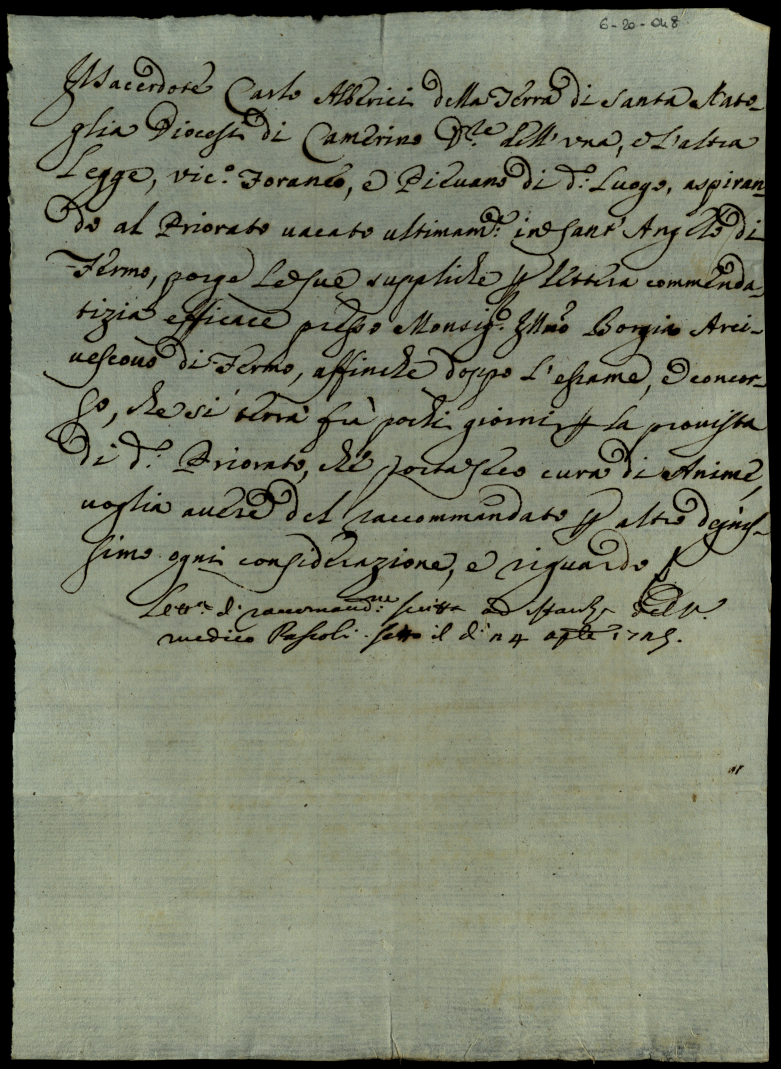 6-20-048
Il Sacerdote Carlo Alberici della Terra di Santa Nato-
glia Diocesi di Camerino D.re dell'una, e l'altra
Legge, Vic.o Foraneo, e Pievano di d.o Luogo, aspiran-
do al Priorato vacato ultimam.te in Sant'Angelo di
Fermo, porge le sue suppliche p lettera commenda-
tizia efficace presso Monsig.r Ill.mo Borgia Arci-
vescovo di Fermo, affinche doppo l'essame, e concor-
so, che si terrà frà pochi giorni p la provista
di d.o Priorato, che porta seco cura di Anime,
voglia avere del raccommandato p altro degnis-
simo ogni considerazione, e riguardo
Lett.a di raccomand.ne scritta ad istanza del S.r
medico Pascoli sotto il dì 24 aple 17